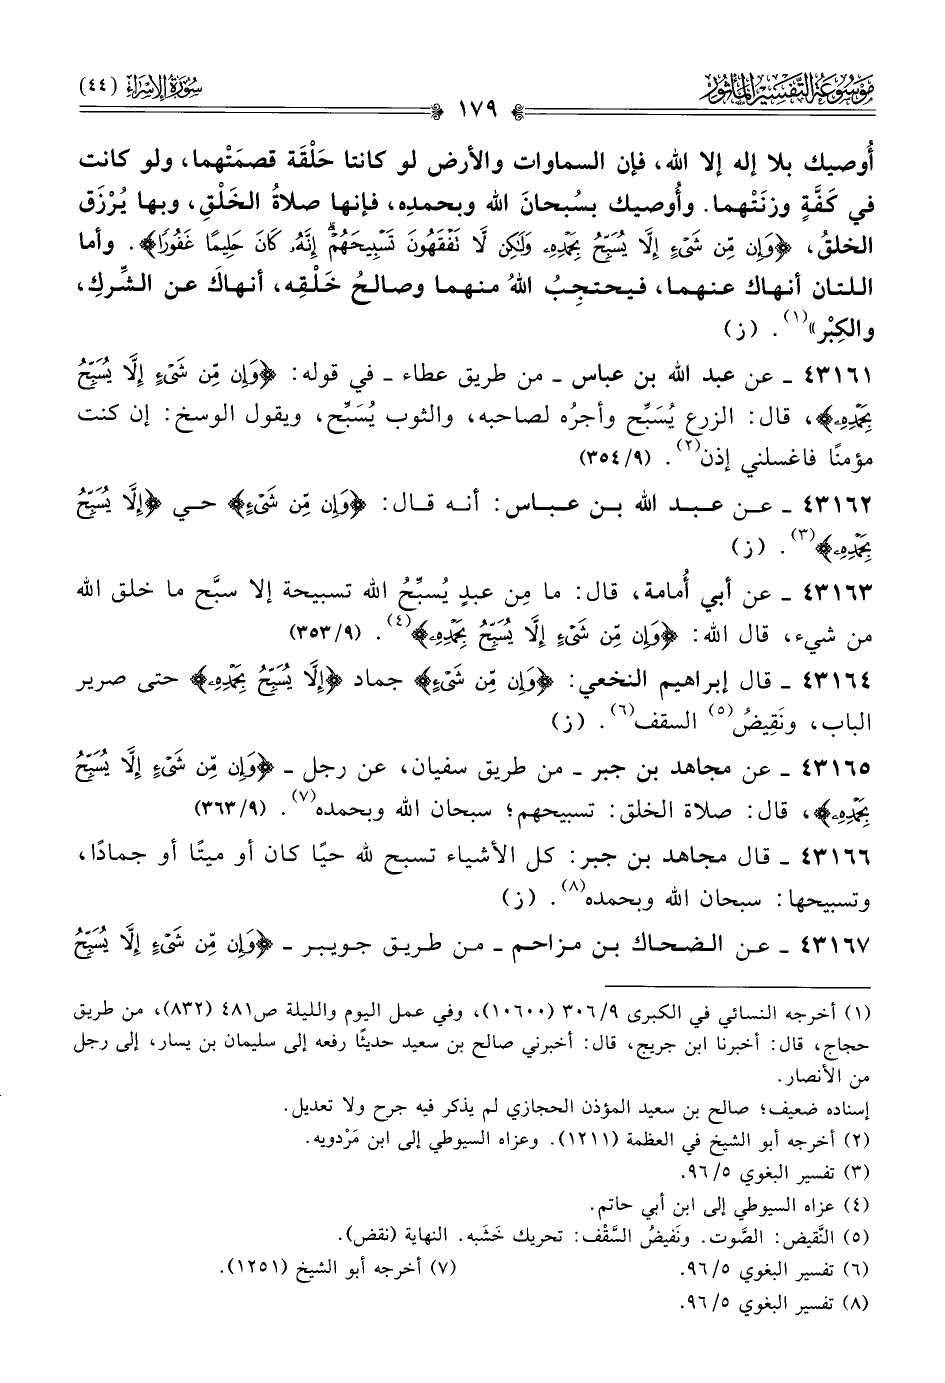 مَوْسُوعَةُ التَّفْسِيرِ المَأْثُورِ
١٧٩
سُورَةُ الإِسْرَاءِ (٤٤)
أُوصيك بلا إله إلا الله، فإن السماوات والأرض لو كانتا حَلْقَة قصمَتْهما، ولو كانت
في كَفَّةٍ وزنَتْهما. وأُوصيك بسُبحانَ الله وبحمده، فإنها صلاةُ الخَلْقِ، وبها يُرْزَق
الخلقُ، ﴿وَإِن مِّن شَىْءٍ إِلَّا يُسَبِّحُ بِحَمْدِهِۦ وَلَـٰكِن لَّا تَفْقَهُونَ تَسْبِيحَهُمْۗ إِنَّهُۥ كَانَ حَلِيمًا غَفُورًا﴾. وأما
اللتان أنهاك عنهما، فيحتجِبُ اللهُ منهما وصالحُ خَلْقِه، أنهاكَ عن الشِّركِ،
والكِبْر»(١). (ز)
٤٣١٦١ ـ عن عبد الله بن عباس ـ من طريق عطاء ـ في قوله: ﴿وَإِن مِّن شَىْءٍ إِلَّا يُسَبِّحُ
بِحَمْدِهِۦ﴾، قال: الزرع يُسَبِّح وأجرُه لصاحبه، والثوب يُسَبِّح، ويقول الوسخ: إن كنت
مؤمنًا فاغسلني إذن(٢). (٩/ ٣٥٤)
٤٣١٦٢ ـ عن عبد الله بن عباس: أنه قال: ﴿وَإِن مِّن شَىْءٍ﴾ حي ﴿إِلَّا يُسَبِّحُ
بِحَمْدِهِۦ﴾(٣). (ز)
٤٣١٦٣ ـ عن أبي أُمامة، قال: ما مِن عبدٍ يُسبِّحُ الله تسبيحة إلا سبَّح ما خلق الله
من شيء، قال الله: ﴿وَإِن مِّن شَىْءٍ إِلَّا يُسَبِّحُ بِحَمْدِهِۦ﴾(٤). (٩/ ٣٥٣)
٤٣١٦٤ ـ قال إبراهيم النخعي: ﴿وَإِن مِّن شَىْءٍ﴾ جماد ﴿إِلَّا يُسَبِّحُ بِحَمْدِهِۦ﴾ حتى صرير
الباب، ونَقِيضُ(٥) السقف(٦). (ز)
٤٣١٦٥ ـ عن مجاهد بن جبر ـ من طريق سفيان، عن رجل ـ ﴿وَإِن مِّن شَىْءٍ إِلَّا يُسَبِّحُ
بِحَمْدِهِۦ﴾، قال: صلاة الخلق: تسبيحهم؛ سبحان الله وبحمده(٧). (٩/ ٣٦٣)
٤٣١٦٦ ـ قال مجاهد بن جبر: كل الأشياء تسبح لله حيًا كان أو ميتًا أو جمادًا،
وتسبيحها: سبحان الله وبحمده(٨). (ز)
٤٣١٦٧ ـ عن الضحاك بن مزاحم ـ من طريق جويبر ـ ﴿وَإِن مِّن شَىْءٍ إِلَّا يُسَبِّحُ
(١) أخرجه النسائي في الكبرى ٩/ ٣٠٦ (١٠٦٠٠)، وفي عمل اليوم والليلة ص٤٨١ (٨٣٢)، من طريق
حجاج، قال: أخبرنا ابن جريج، قال: أخبرني صالح بن سعيد حديثًا رفعه إلى سليمان بن يسار، إلى رجل
من الأنصار.
إسناده ضعيف؛ صالح بن سعيد المؤذن الحجازي لم يذكر فيه جرح ولا تعديل.
(٢) أخرجه أبو الشيخ في العظمة (١٢١١). وعزاه السيوطي إلى ابن مَرْدويه.
(٣) تفسير البغوي ٥/ ٩٦.
(٤) عزاه السيوطي إلى ابن أبي حاتم.
(٥) النَّقِيض: الصَّوت. ونَفيضُ السَّقْف: تحريك خَشَبه. النهاية (نقض).
(٦) تفسير البغوي ٥/ ٩٦. (٧) أخرجه أبو الشيخ (١٢٥١).
(٨) تفسير البغوي ٥/ ٩٦.